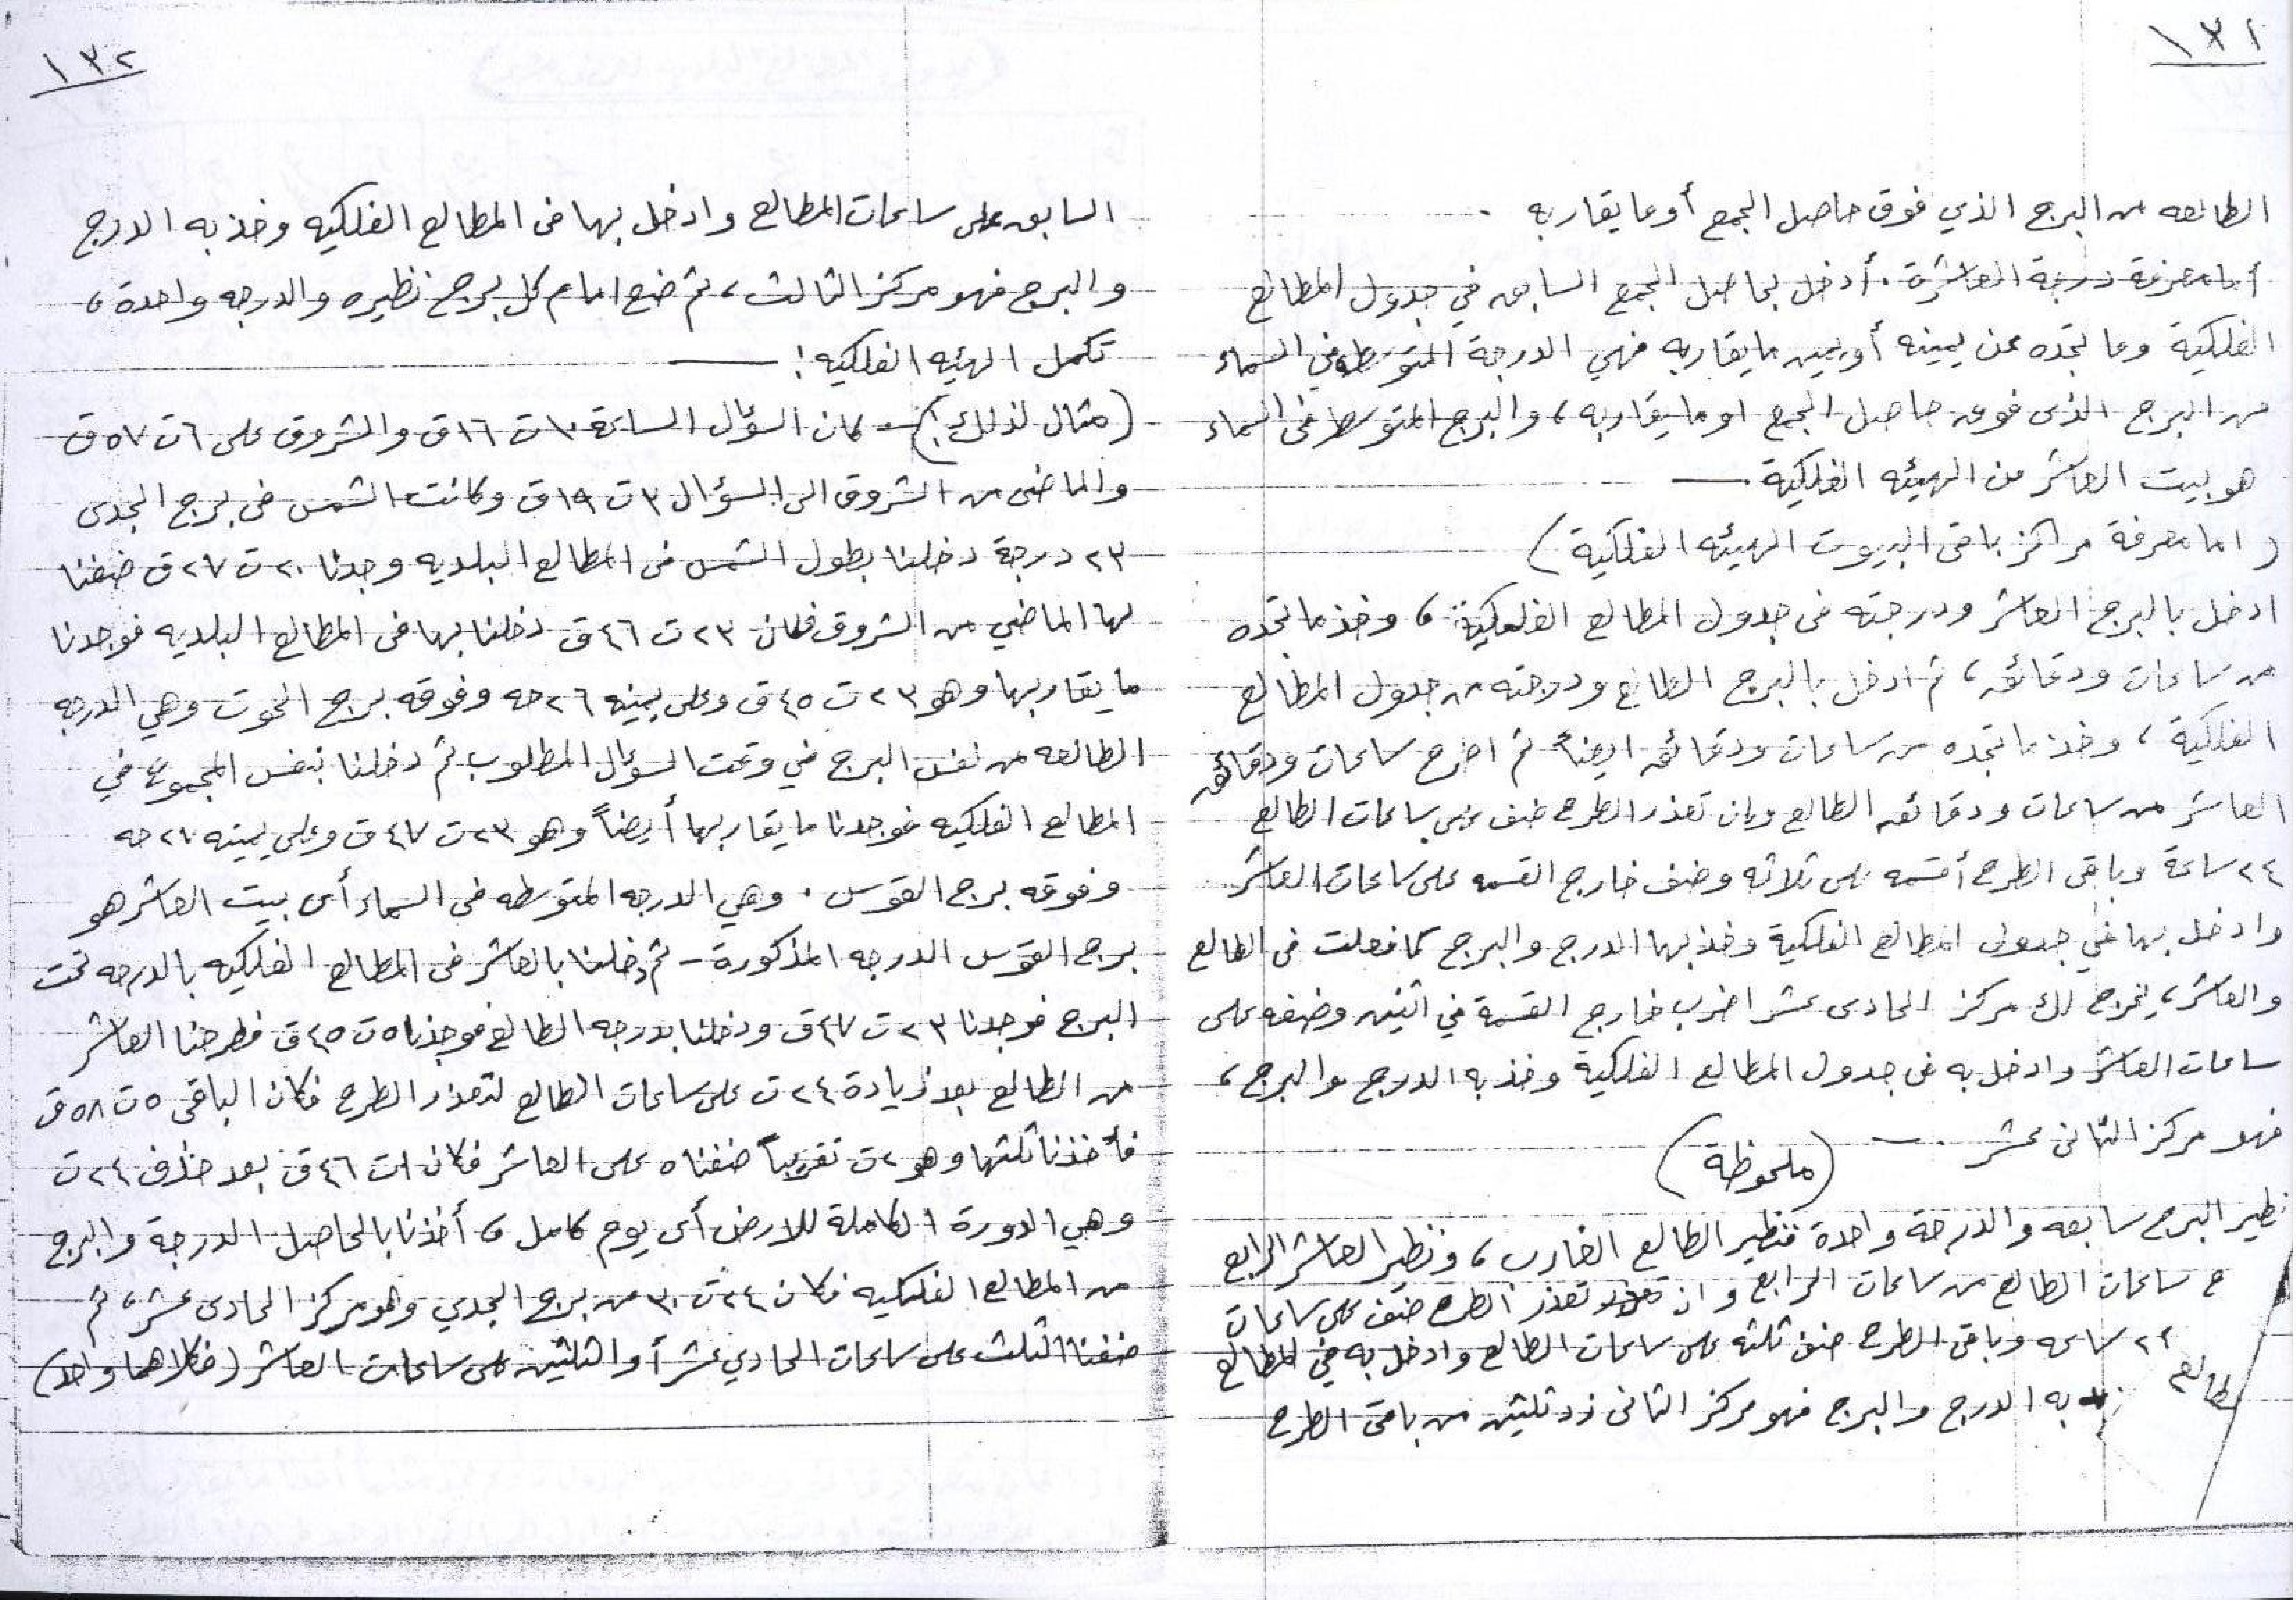 ١٣١
الطالعه من البرج الذي فوق حاصل الجمع أو ما يقاربه .
أما معرفة درجة العاشرة . أدخل بحاصل الجمع السابق في جدول المطالع
الفلكية وما تجده عن يمينه أو يمين ما يقاربه فهي الدرجة المتوسطه في السماء
من البرج الذى فوق حاصل الجمع او ما يقاربه ، والبرج المتوسط فى السماء
هو بيت العاشر من الهيئه الفلكية . —
( اما معرفة مراكز باقى البيوت الهيئه الفلكية )
ادخل بالبرج العاشر ودرجته فى جدول المطالع الفلكية ، وخذ ما تجده
من ساعات ودقائق ، ثم ادخل بالبرج الطالع ودرجته من جدول المطالع
الفلكية ، وخذ ما تجده من ساعات ودقائق ايضاً ثم اطرح ساعات ودقائق
العاشر من ساعات ودقائق الطالع وان تعذر الطرح ضف على ساعات الطالع
٢٤ ساعة وباقى الطرح أقسمه على ثلاثه وضف خارج القسمه على ساعات العاشر
وادخل بها في جدول المطالع الفلكية وخذ بها الدرج والبرج كما فعلت فى الطالع
والعاشر ، يخرج لك مركز الحادى عشر اضرب خارج القسمة في اثنين وضفه على
ساعات العاشر وادخل به فى جدول المطالع الفلكية وخذ به الدرج والبرج ،
فهو مركز الثانى عشر . —
( ملحوظة )
نظير البرج سابعه والدرجة واحدة فنظير الطالع الغارب ، ونظير العاشر الرابع
ح ساعات الطالع من ساعات الرابع وان تعذر الطرح ضف على ساعات
٢٤ ساعه وباقى الطرح ضف ثلثه على ساعات الطالع وادخل به في المطالع
طالع
به الدرج والبرج فهو مركز الثانى زد ثلثين من باقى الطرح
١٣٢
السابق على ساعات المطالع وادخل بها فى المطالع الفلكيه وخذ به الدرج
والبرج فهو مركز الثالث ، ثم ضع امام كل برج نظيره والدرجه واحدة ،
تكمل الهيئه الفلكيه ! —
( مثال لذلك : ) - كان السؤال الساعة ١٠ ت ١٦ ق والشروق على ٦ ت ٥٧ ق
والماضى من الشروق الى السؤال ٣ ت ١٩ ق وكانت الشمس فى برج الجدى
٢٣ درجة دخلنا بطول الشمس فى المطالع البلديه وجدنا ٢٠ ت ٢٧ ق ضفنا
لها الماضي من الشروق فكان ٢٣ ت ٤٦ ق دخلنا بها فى المطالع البلديه فوجدنا
ما يقاربها وهو ٢٣ ت ٤٥ ق وعلى يمينه ٢٦ حه وفوقه برج الحوت وهي الدرجه
الطالعه من نفس البرج في وقت السؤال المطلوب ثم دخلنا بنفس المجموع في
المطالع الفلكيه فوجدنا ما يقاربها أيضاً وهو ٢٣ ت ٤٧ ق وعلى يمينه ٢٧ حه
وفوقه برج القوس . وهي الدرجه المتوسطه فى السماء أى بيت العاشر هو
برج القوس الدرجه المذكورة - ثم دخلنا بالعاشر فى المطالع الفلكيه بالدرجه تحت
البرج فوجدنا ٢٣ ت ٤٧ ق ودخلنا بدرجه الطالع فوجدنا ٥ ت ٤٥ ق فطرحنا العاشر
من الطالع بعد زيادة ٢٤ ت على ساعات الطالع لتعذر الطرح فكان الباقى ٥ ت ٥٨ ق
فأخذنا ثلثها وهو ٢ ت تقريباً ضفناه على العاشر فكان ١ ت ٤٦ ق بعد حذف ٢٤ ت
وهي الدورة الكاملة للارض أى يوم كامل ، أخذنا بالحاصل الدرجة والبرج
من المطالع الفلكيه فكان ٢٤ ت ٣٠ من برج الجدي وهو مركز الحادى عشر ، ثم
ضفنا الثلث على ساعات الحادي عشر أو الثلثين على ساعات العاشر ( فكلاهما واحد )